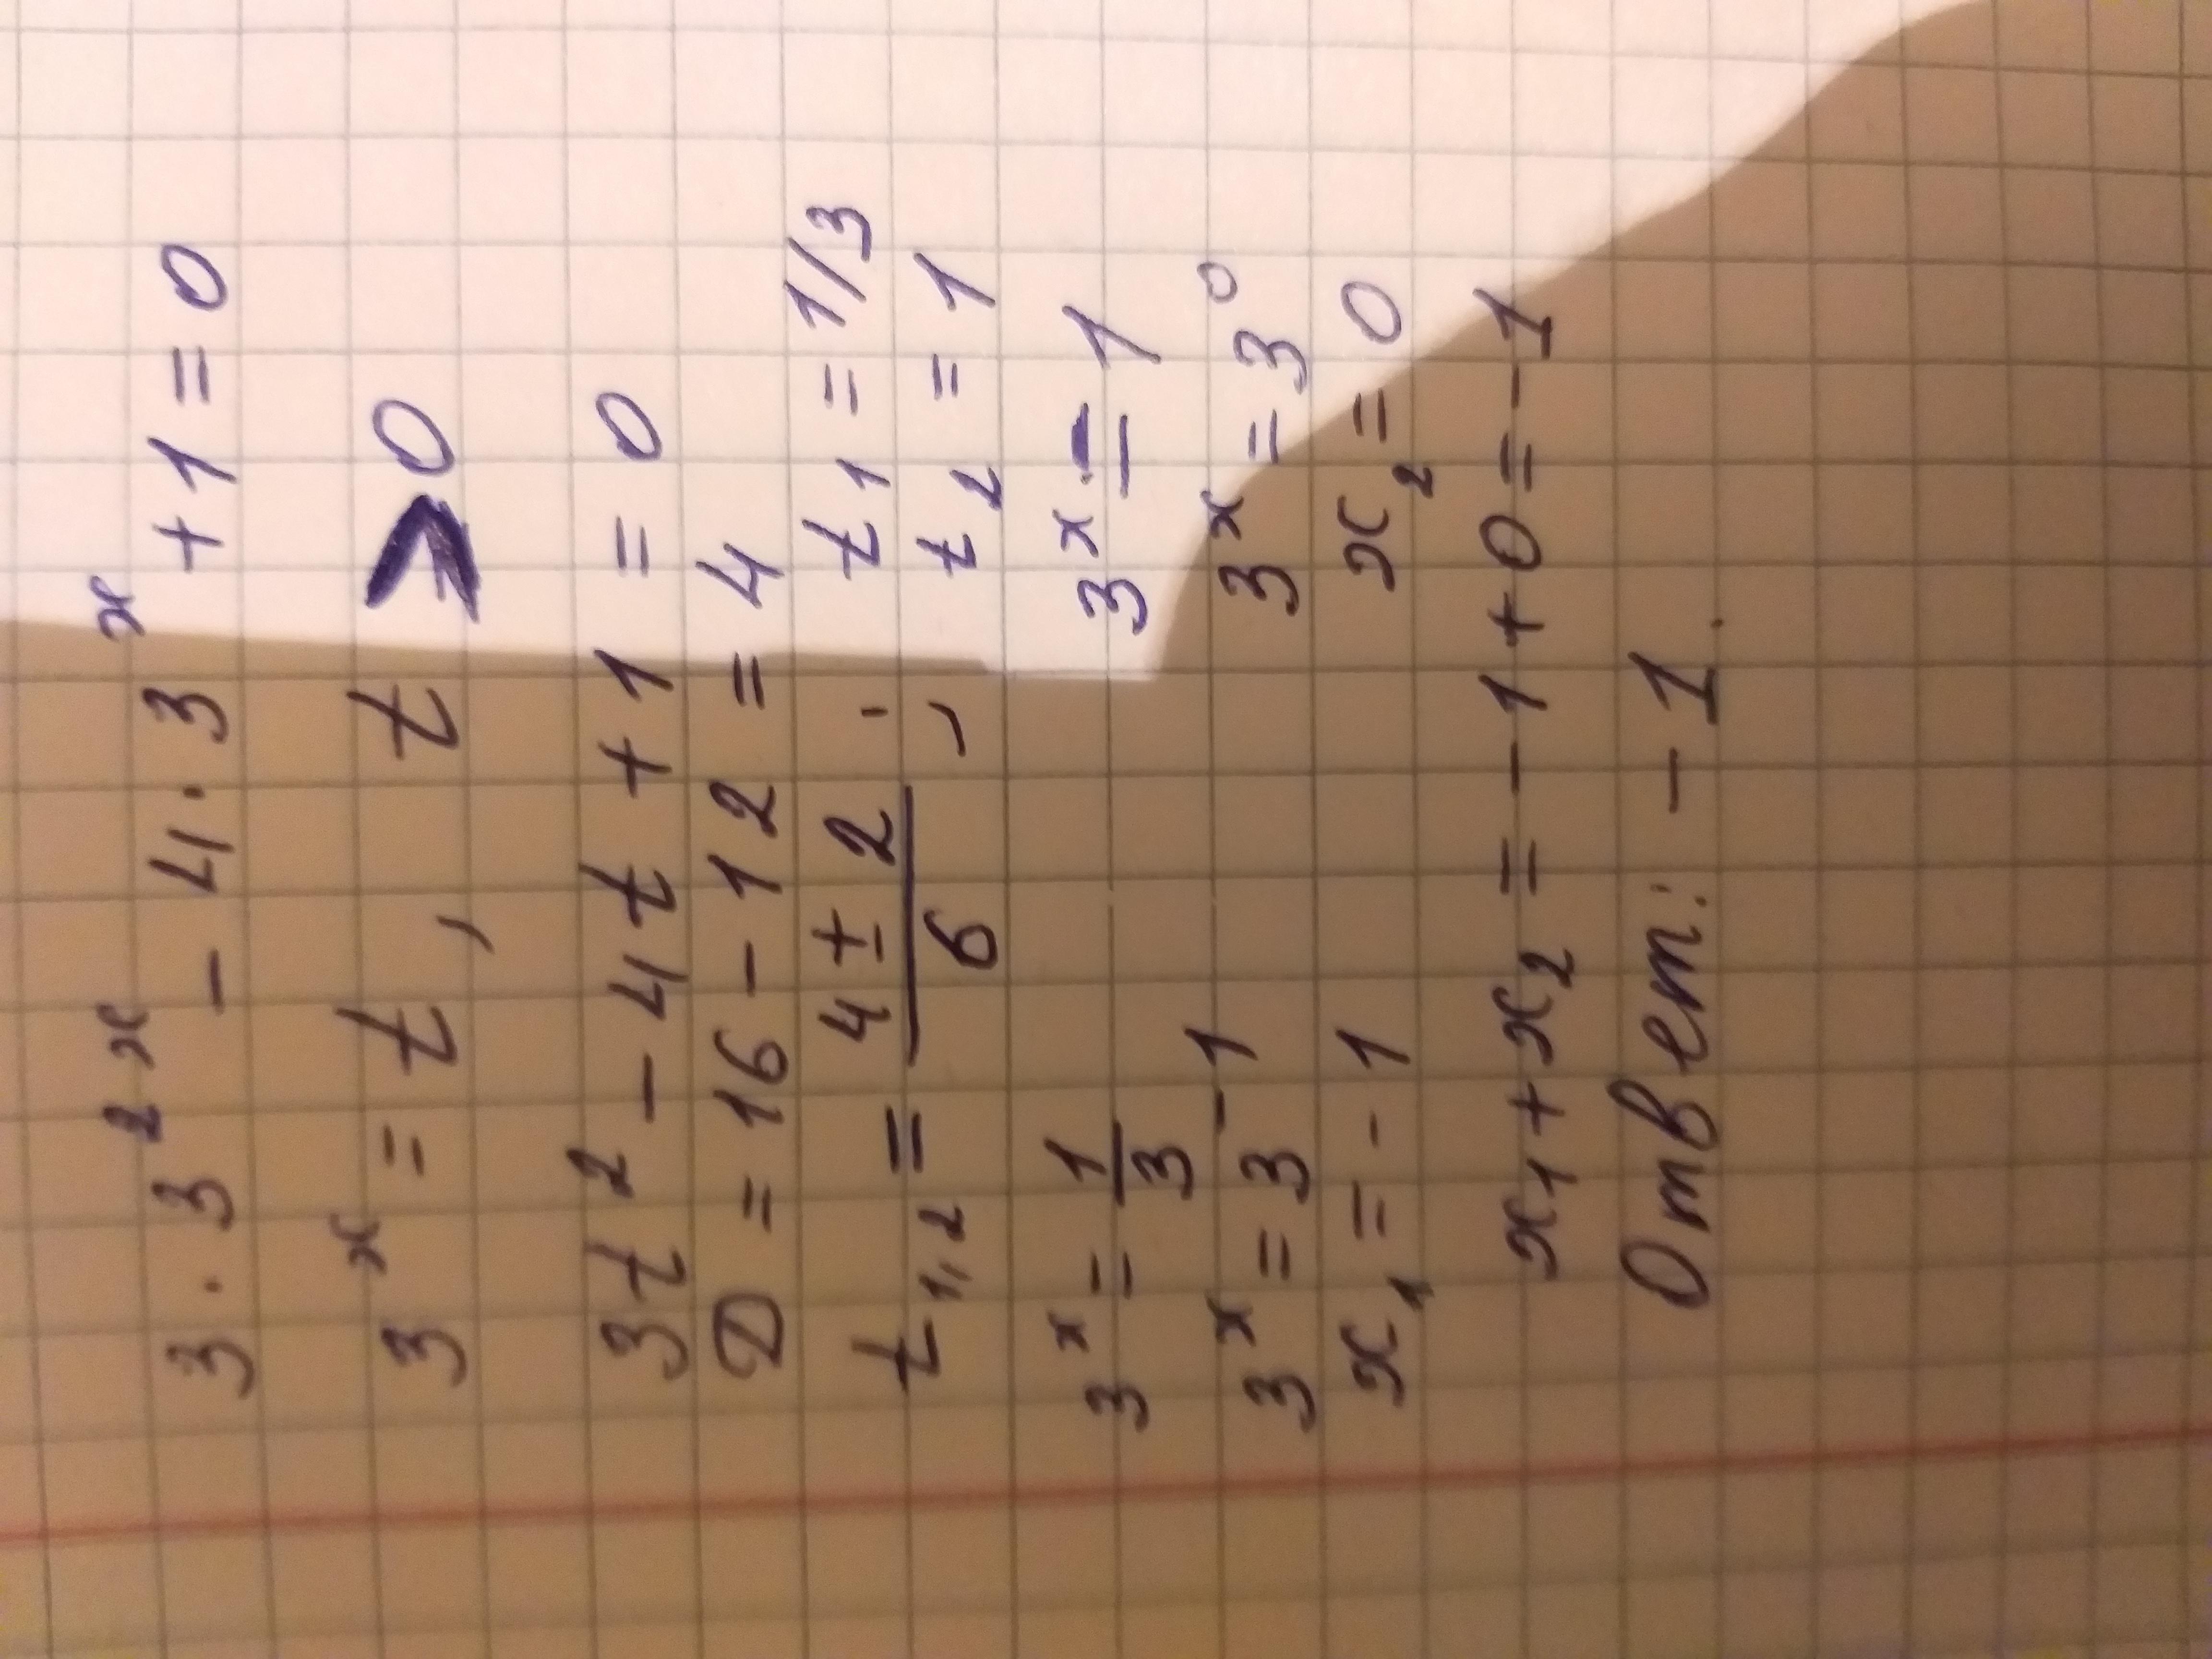 3 · 3^{2x} - 4 · 3^x + 1 = 0
3^x = t, t > 0
3t² - 4t + 1 = 0
D = 16 - 12 = 4
t_{1,2} = \frac{4 ± 2}{6}; t_1 = 1/3
t_2 = 1
3^x = \frac{1}{3} 3^x = 1
3^x = 3^{-1} 3^x = 3^0
x_1 = -1 x_2 = 0
x_1 + x_2 = -1 + 0 = -1
Ответ: -1.